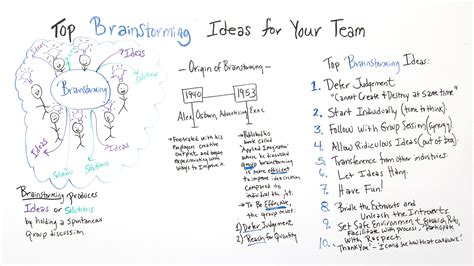 Top Brainstorming Ideas for Your Team
Ideas
Ideas
Solutions
Brainstorming
Ideas
Solutions
Solutions
Ideas
Brainstorming Produces
Ideas or Solutions
by holding a spontaneous
group discussion.
- Origin of Brainstorming -
1940
1953
Alex Osborn, Advertising Exec
Frustrated with his
employees creative
outputs and began
experimenting with
ways to improve it
Published his
book called
"Applied Imagination"
where he discussed
group brainstorming
is more efficient
to improve idea creation
compared to
individual
To Be Effective,
the group must:
1) Defer Judgement
2) Reach for Quantity
Top Brainstorming Ideas:
1. Defer Judgement
"Cannot Create & Destroy at Same time"
2. Start Individually (time to think)
3. Follow With Group Session (synergy)
4. Allow Ridiculous Ideas (out of box)
5. Transference from other industries
6. Let Ideas Hang.
7. Have Fun!
8. Bridle the Extroverts and
Unleash the Introverts
9. Set Safe Environment & Establish Rules
Facilitate with process, "Participate
With Respect."
10. "Thank You" - I could see how that could work.